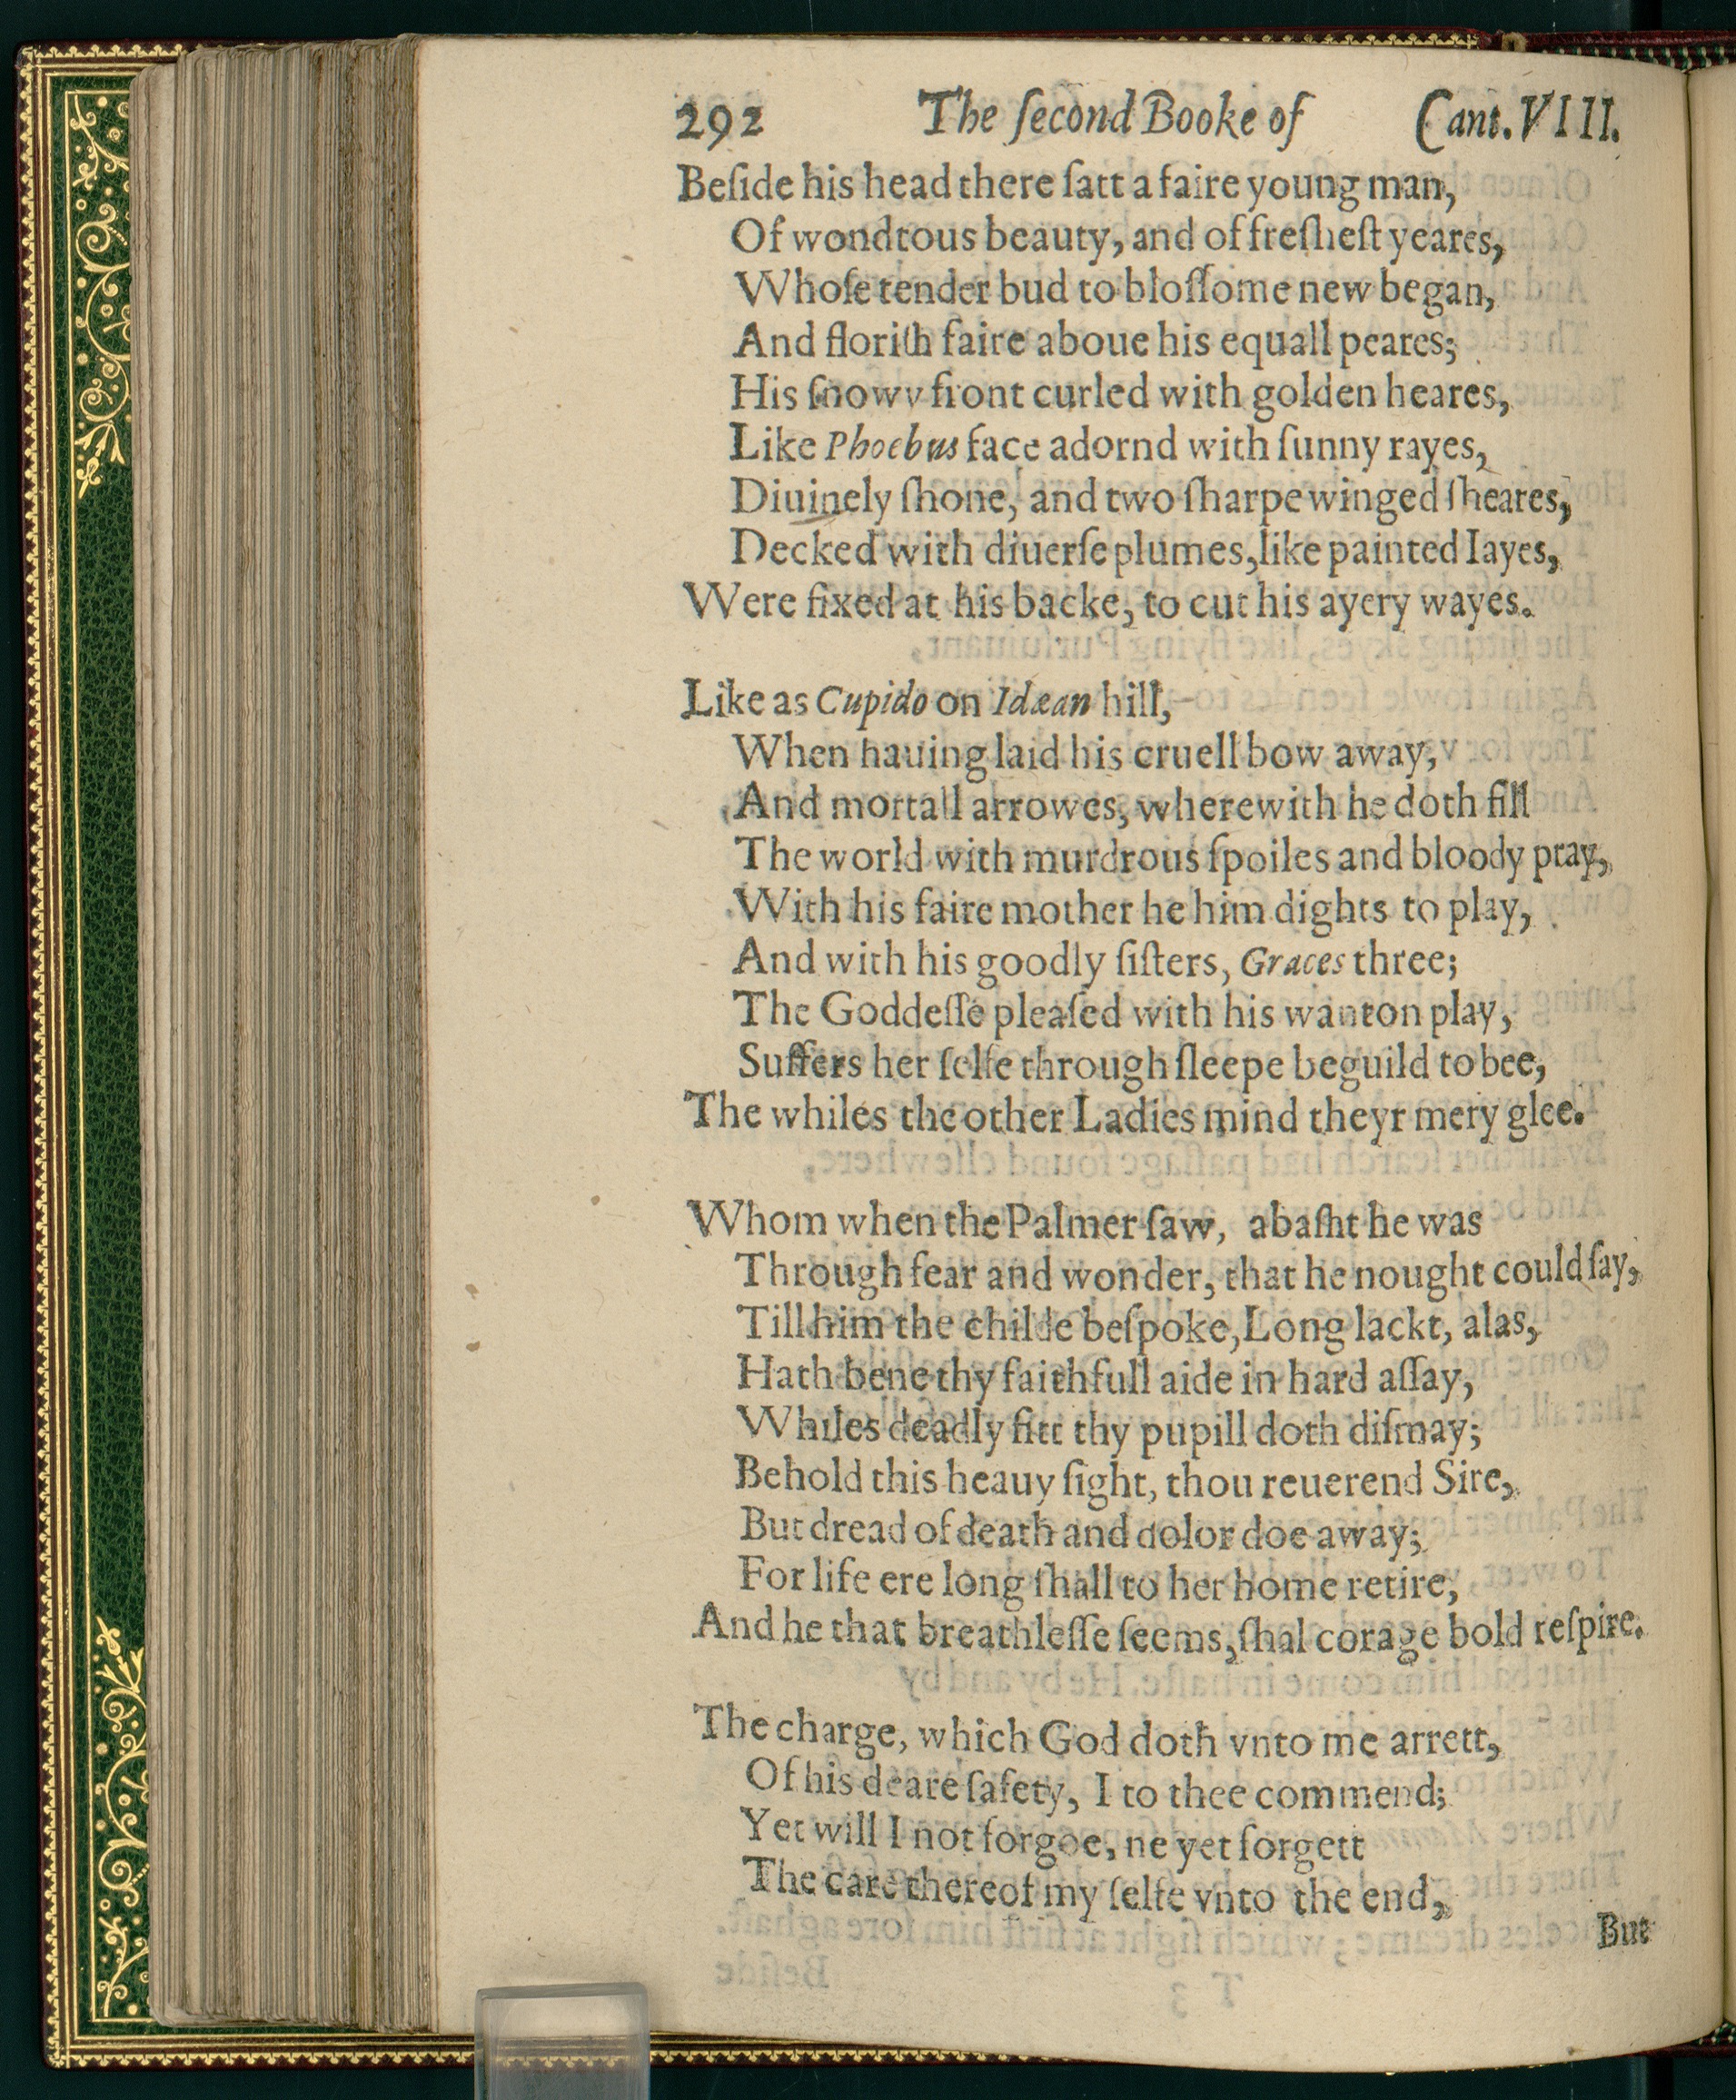 292 The ſecond Booke of Cant. VIII.
Beſide his head there ſatt a faire young man,
Of wondrous beauty, and of freſheſt yeares,
Whoſe tender bud to bloſſome new began,
And floriſh faire aboue his equall peares;
His ſnowy front curled with golden heares,
Like Phoebus face adornd with ſunny rayes,
Diuinely ſhone, and two ſharpe winged ſheares,
Decked with diuerſe plumes, like painted Iayes,
Were fixed at his backe, to cut his ayery wayes.
Like as Cupido on Idæan hill,
When hauing laid his cruell bow away,
And mortall arrowes, wherewith he doth fill
The world with murdrous ſpoiles and bloody pray,
With his faire mother he him dights to play,
And with his goodly ſiſters, Graces three;
The Goddeſſe pleaſed with his wanton play,
Suffers her ſelfe through ſleepe beguild to bee,
The whiles the other Ladies mind theyr mery glee.
Whom when the Palmer ſaw, abaſht he was
Through fear and wonder, that he nought could ſay,
Till him the childe beſpoke, Long lackt, alas,
Hath bene thy faithfull aide in hard aſſay,
Whiles deadly fitt thy pupill doth diſmay;
Behold this heauy ſight, thou reuerend Sire,
But dread of death and dolor doe away;
For life ere long ſhall to her home retire,
And he that breathleſſe ſeems, ſhal corage bold reſpire.
The charge, which God doth vnto me arrett,
Of his deare ſafety, I to thee commend;
Yet will I not forgoe, ne yet forgett
The care thereof my ſelfe vnto the end,
But